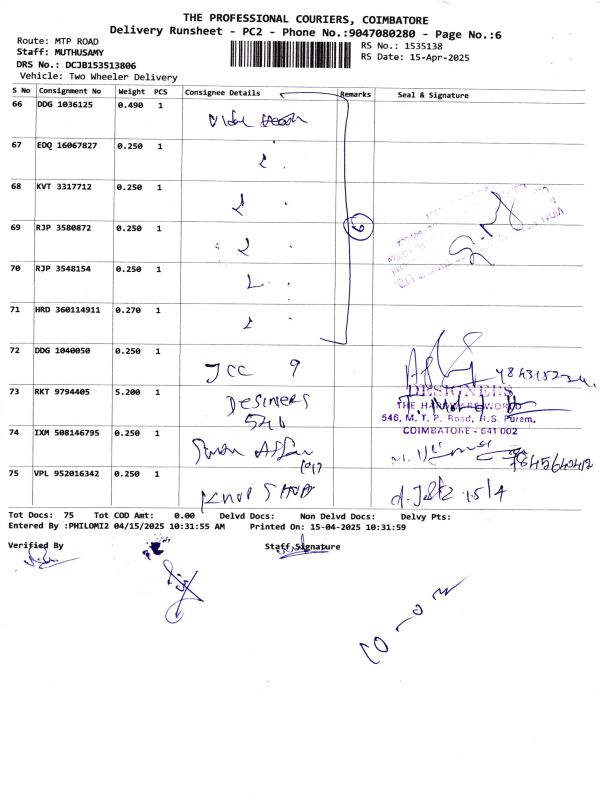 THE PROFESSIONAL COURIERS, COIMBATORE
Delivery Runsheet - PC2 - Phone No.:9047080280 - Page No.:6
Route: MTP ROAD
RS No.: 1535138
Staff: MUTHUSAMY
RS Date: 15-Apr-2025
DRS No.: DCJB153513806
Vehicle: Two Wheeler Delivery
S No Consignment No Weight PCS Consignee Details Remarks Seal & Signature
66 DDG 1036125 0.490 1
67 EDQ 16067827 0.250 1
68 KVT 3317712 0.250 1
69 RJP 3580872 0.250 1 6
70 RJP 3548154 0.250 1
71 HRD 360114911 0.270 1
72 DDG 1040050 0.250 1 JCC 9
73 RKT 9794405 5.200 1 Desiners 546
DESIGNERS
THE HARDWARE WORLD
546, M. T. P. Road, R.S. Puram,
COIMBATORE - 641 002
74 IXM 508146795 0.250 1
7845640412
75 VPL 952016342 0.250 1 15/4
Tot Docs: 75 Tot COD Amt: 0.00 Delvd Docs: Non Delvd Docs: Delvy Pts:
Entered By :PHILOMI2 04/15/2025 10:31:55 AM Printed On: 15-04-2025 10:31:59
Verified By Staff Signature